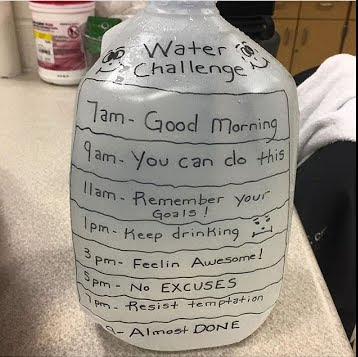 Water
Challenge
7am - Good Morning
9am - You can do this
11am - Remember your
Goals!
1pm - Keep drinking
3pm - Feelin Awesome!
5pm - No EXCUSES
7pm - Resist temptation
9 - Almost DONE